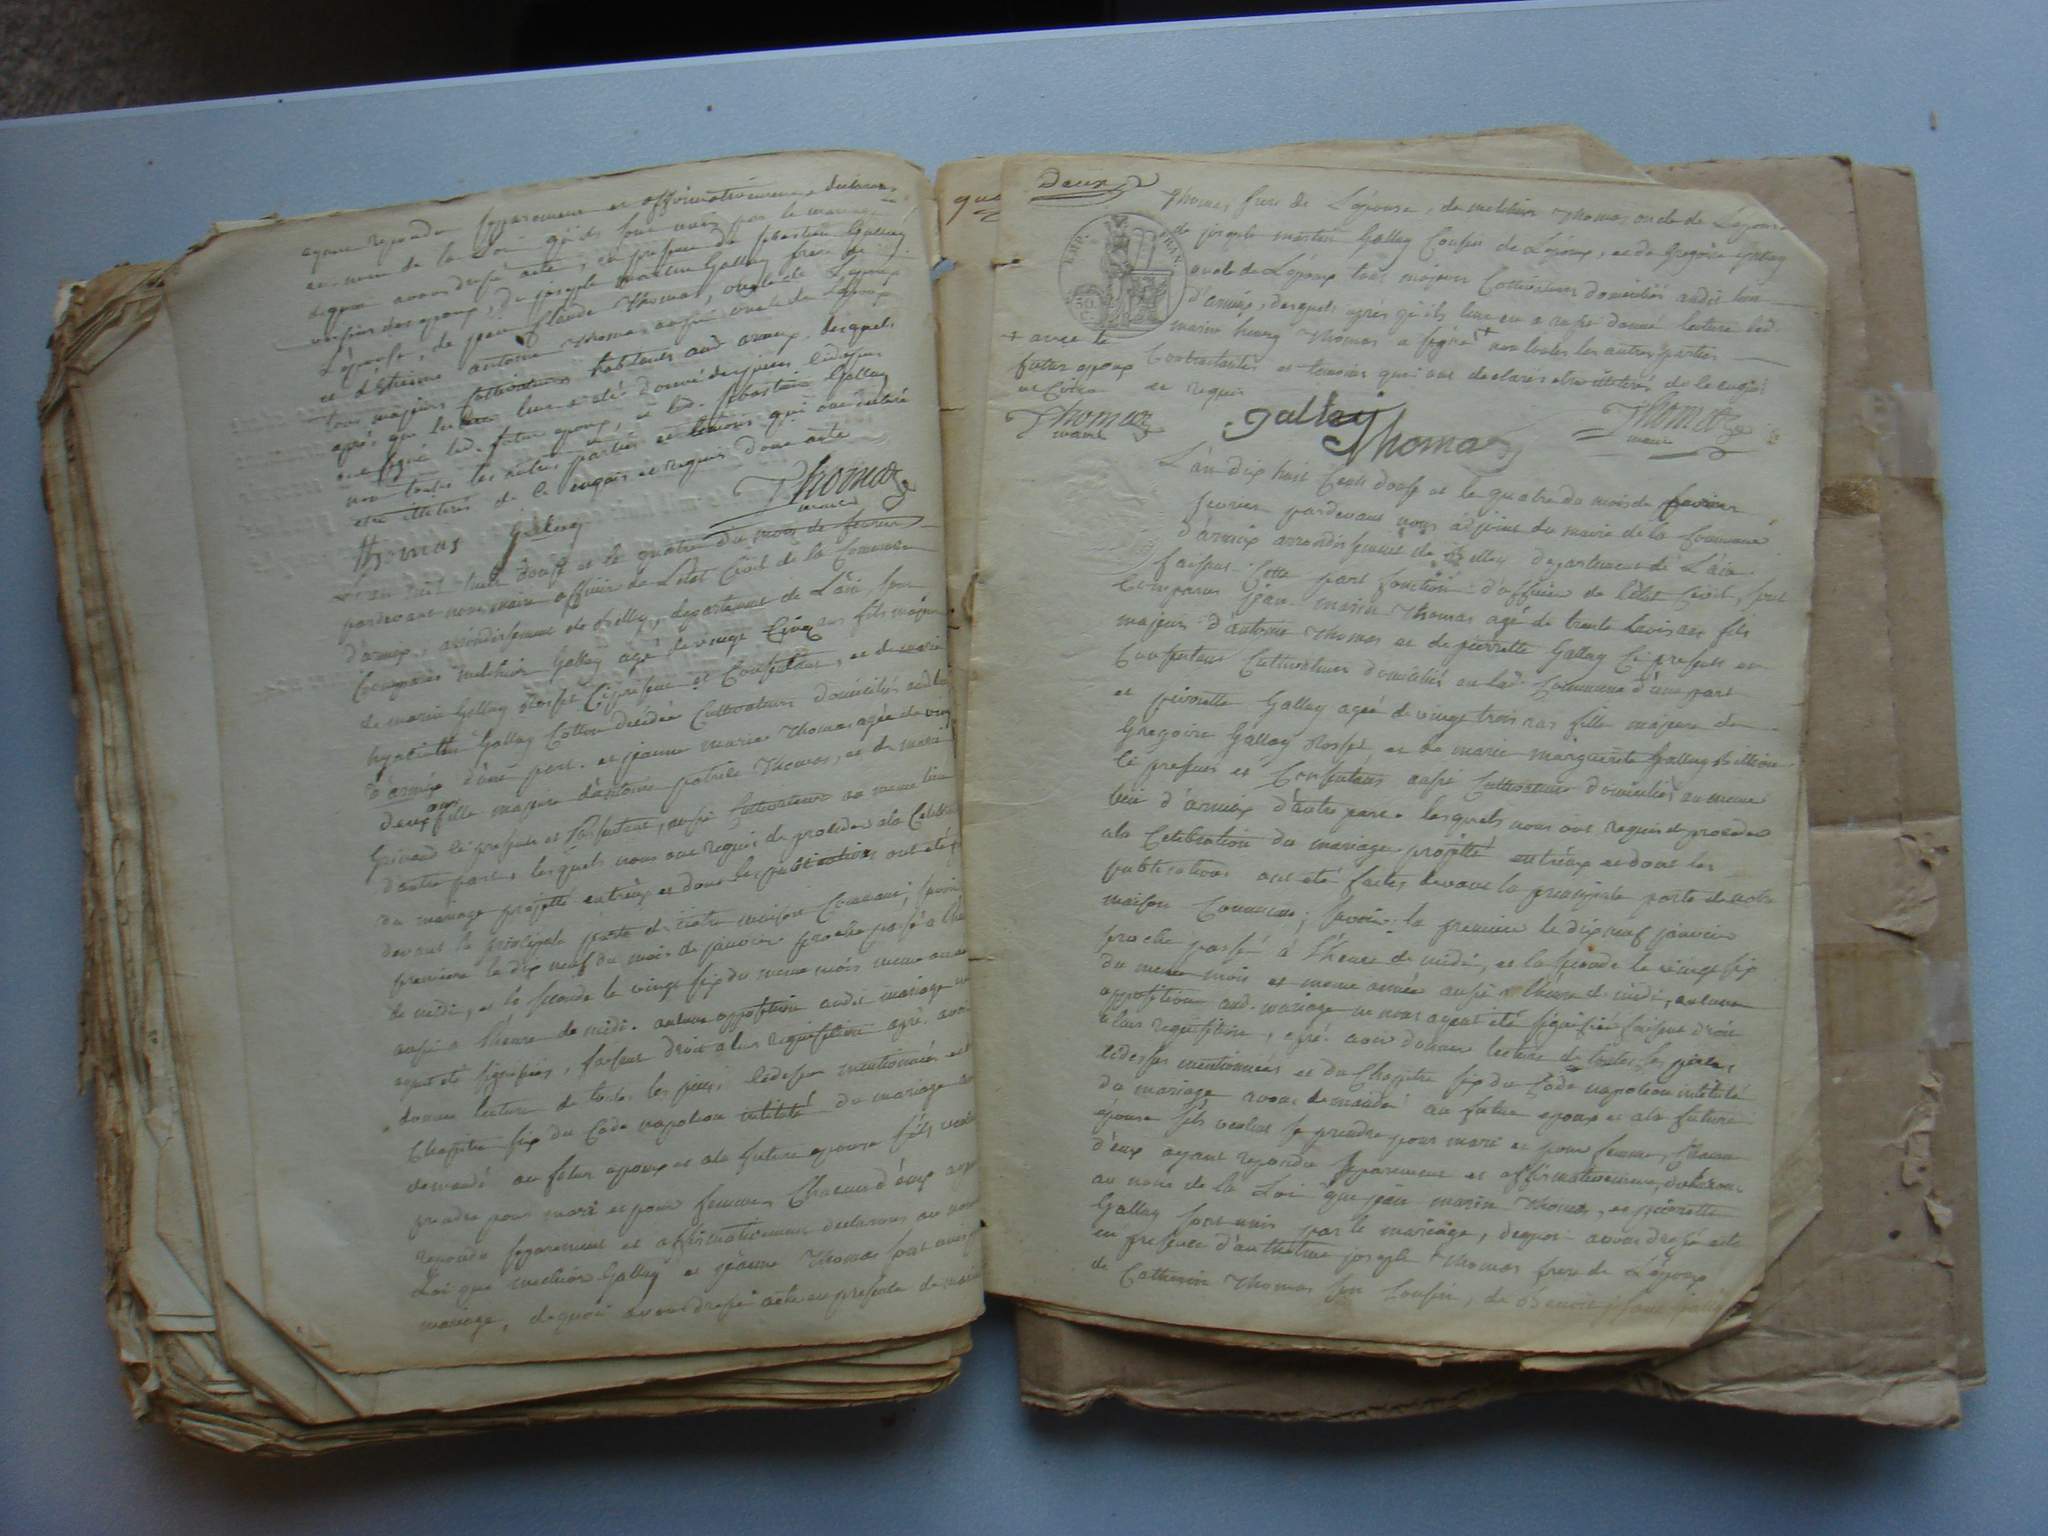 ayant repondu separement et affirmativement declarons
au nom de la Loi qu'ils sont unis par le mariage
dequoi avons dressé acte, en presence de sebastien Gallay
cousin des epoux, de joseph martin Gallay frere de
L'épouse, de jean claude Thomas, oncle de L'epoux
et d'étienne antoine Thomas aussi oncle de L'epoux
tous majeurs cultivateurs habitants aud armix, lesquels
après que lecture leur a été donné des pieces cidessus
ont signé led. futur epoux, et led. sebastien Gallay
non toutes les autres parties et temoins qui ont declaré
etre illiterés de ce enquis et requis dont acte
Thomas Gallay Thomas
maire
L'an mil huit cent douze et le quatre du mois de fevrier
pardevant nous maire officier de L'etat Civil de la Commune
d'armix, arrondissement de Belley, departement de L'ain, sont
Comparus melchior Gallay agé de vingt Cinq ans fils majeur
de marin Gallay Rosset Cipresent et Consentant, et de marie
hyacinthe Gallay Cottin decedée Cultivateurs domiciliés audit
d'armix d'une part. et jeanne marie Thomas agée de vingt
deux ans fille majeure d'antoine patrice Thomas, et de marie
Grinand ci presents et Consentant, aussi Cultivateurs au meme lieu
d'autre part, lesquels nous ont requis de proceder ala Celebration
du mariage projetté entr'eux et dont les publications ont été
devant la principale porte de notre maison Commune; savoir
premiere le dix neuf du mois de janvier proche passé a l'heure
de midi, et la seconde le vingt six du meme mois meme année
aussi a l'heure de midi. aucune opposition audit mariage ne
ayant été signifiées, faisant droit a leur requisition après avoir
donné lecture de toutes les pieces cidessus mentionnées et
Chapitre six du Code napoleon intitulé du mariage avons
demandé au futur epoux et ala future epouse s'ils veulent
prendre pour mari et pour femme, Chacun d'eux ayant
repondu separement et affirmativement declarons au nom
Loi que melchior Gallay et jeanne Thomas sont unis
mariage, dequoi avons dressé acte en presence de marin
Deux
Thomas frere de L'épouse, de melchior Thomas oncle de L'epouse
de joseph martin Gallay Cousin de L'époux, et de Gregoire Gallay
oncle de L'époux tous majeurs Cultivateurs domiciliés audit lieu
d'armix, desquels après qu'ils leur en a été donné lecture led.
marin henry Thomas a signé + non toutes les autres parties
Contractantes et temoins qui ont declarés etre illiterés de ce enquis
et requis
EMP. FRAN.
+ avec le
futur epoux
Thomas
maire
Gallay
Thomas
Thomas
maire
L'an dix huit Cent douze et le quatre du mois de fevrier
fevrier pardevant nous adjoint du maire de la Commune
d'armix arrondissement de Belley departement de L'ain
faisant Cette part fonction d'officier de l'état Civil, sont
Comparus jean marin Thomas agé de trente trois ans fils
majeur d'antoine Thomas et de pierrette Gallay Ci presents et
Consentans Cultivateurs domiciliés en lad. Commune d'une part
et pierrette Gallay agée de vingt trois ans fille majeure de
Gregoire Gallay Rosset et de marie marguerite Gallay Billion
Ci presens et Consentans aussi Cultivateurs domiciliés au meme
lieu d'armix d'autre part. lesquels nous ont requis de proceder
ala Celebration du mariage projetté entr'eux et dont les
publications ont été faites devant la principale porte de notre
maison Commune; savoir la premiere le dix neuf janvier
proche passé à l'heure de midi, et la seconde le vingt six
du meme mois et meme année aussi a l'heure de midi, aucune
opposition aud. mariage ne nous ayant été signifiée faisant droit
a leur requisition, après avoir donné lecture de toutes les pieces
cidessus mentionnées et du Chapitre six du Code napoleon intitulé
du mariage avons demandé au futur epoux et ala future
épouse s'ils veulent se prendre pour mari et pour femme, Chacun
d'eux ayant repondu separement et affirmativement, declarons
au nom de la Loi que jean marin Thomas, et pierrette
Gallay sont unis par le mariage, dequoi avons dressé acte
en presence d'anthelme joseph Thomas frere de L'époux
de Catherin Thomas son Cousin, de